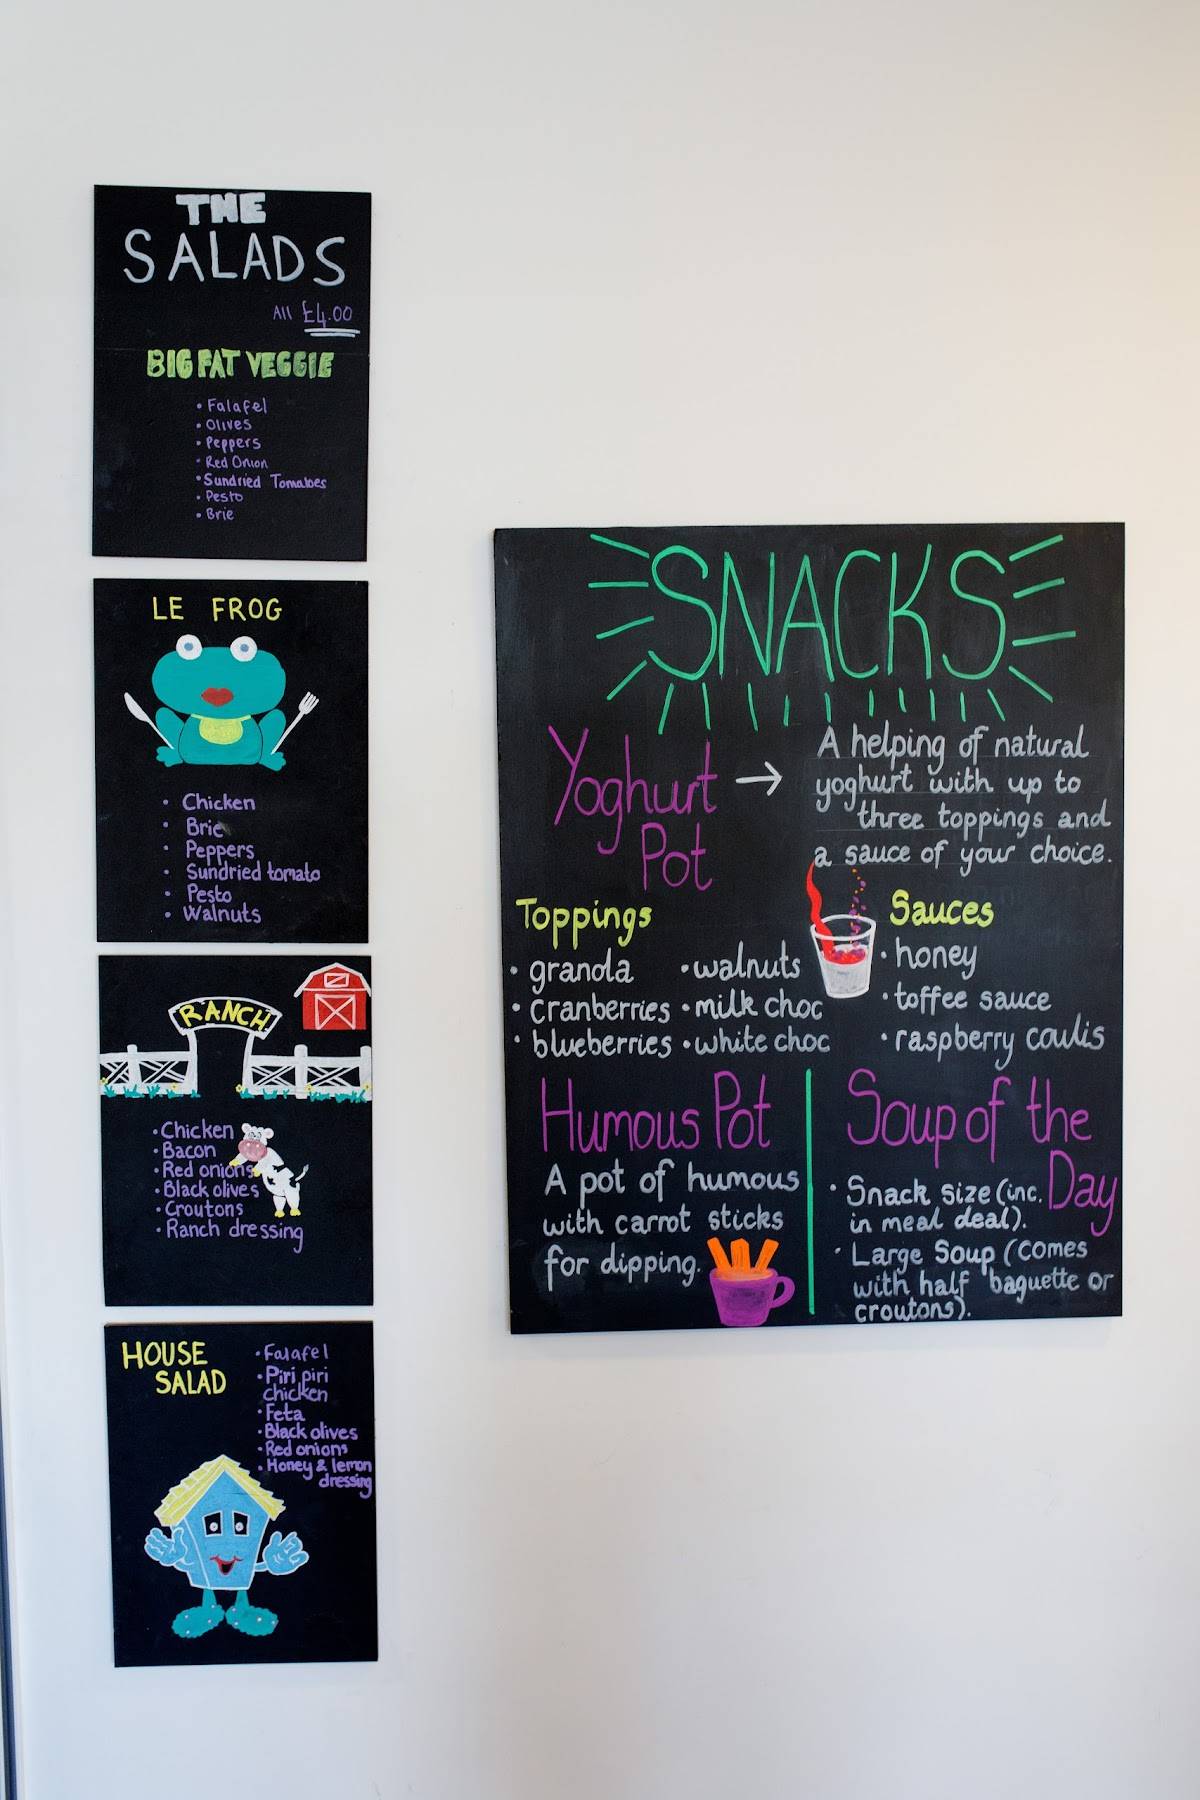 THE
SALADS
All £4.00
BIG FAT VEGGIE
• Falafel
• Olives
• Peppers
• Red Onion
• Sundried Tomatoes
• Pesto
• Brie
LE FROG
• Chicken
• Brie
• Peppers
• Sundried tomato
• Pesto
• Walnuts
RANCH
• Chicken
• Bacon
• Red onions
• Black olives
• Croutons
• Ranch dressing
HOUSE
SALAD
• Falafel
• Piri piri
chicken
• Feta
• Black olives
• Red onions
• Honey & lemon
dressing
SNACKS
Yoghurt
Pot
→
A helping of natural
yoghurt with up to
three toppings and
a sauce of your choice.
Toppings
• granola
• cranberries
• blueberries
• walnuts
• milk choc
• white choc
Sauces
• honey
• toffee sauce
• raspberry coulis
Humous Pot
A pot of humous
with carrot sticks
for dipping.
Soup of the
Day
• Snack size (inc.
in meal deal).
• Large Soup (comes
with half baguette or
croutons).